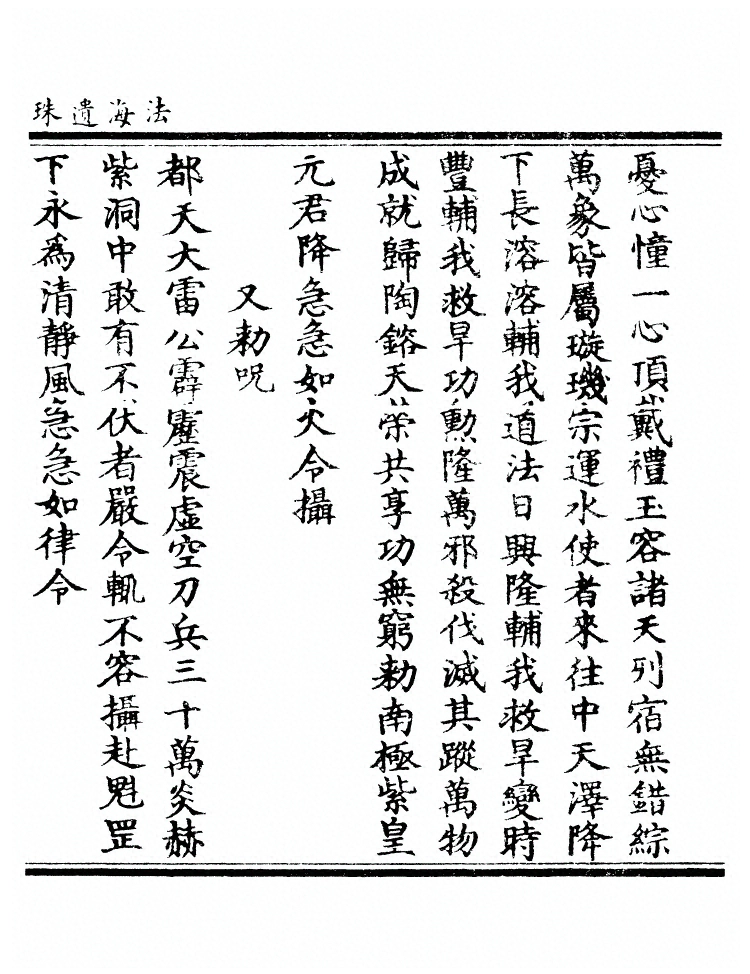 法海遺珠
憂心憧一心頂戴禮玉容諸天列宿無錯綜
萬象皆屬璇璣宗運水使者來往中天澤降
下長溶溶輔我道法日興隆輔我救旱變時
豐輔我救旱功勲隆萬邪殺伐滅其蹤萬物
成就歸陶鎔天榮共享功無窮勑南極紫皇
元君降急急如火令攝
又勑呪
都天大雷公霹靂震虛空刀兵三十萬炎赫
紫洞中敢有不伏者嚴令輒不容攝赴魁罡
下永為清靜風急急如律令